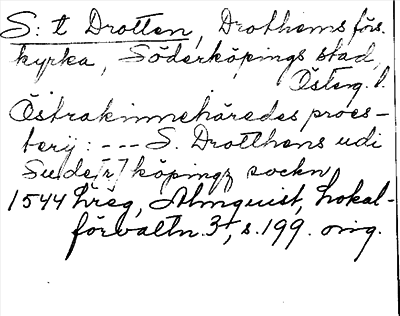 S:t Drotten, Drothems förs.
kyrka, Söderköpings stad,
Österg. l.
Östrakinnehäredes proes-
terij: --- S. Drotthens udi
Sude[r]köpingz sockn
1544 hreg, Almquist, Lokal-
förvaltn. 3¹, s. 199. orig.